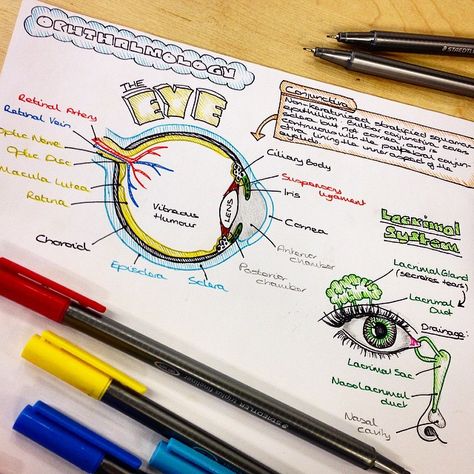 OPHTHALMOLOGY
THE
EYE
Conjunctiva
Non-keratinised stratified squamous
epithelium. Bulbar conjunctiva covers
sclera but not cornea and is
continuous with the palpebral conjun-
ctiva lining the inner aspect of the
eyelids.
Retinal Artery
Retinal Vein
Optic Nerve
Optic Disc
Macula Lutea
Retina
Choroid
Episclera
Sclera
Vitreous
Humour
LENS
Ciliary Body
Suspensory
ligament
Iris
Cornea
Anterior
chamber
Posterior
chamber
Lacrimal
System
Lacrimal Gland
(secretes tears)
Lacrimal
Duct
Drainage:
Lacrimal Sac
Nasolacrimal
duct
Nasal
cavity
STAEDTLER
STAEDTLER triplus fineliner